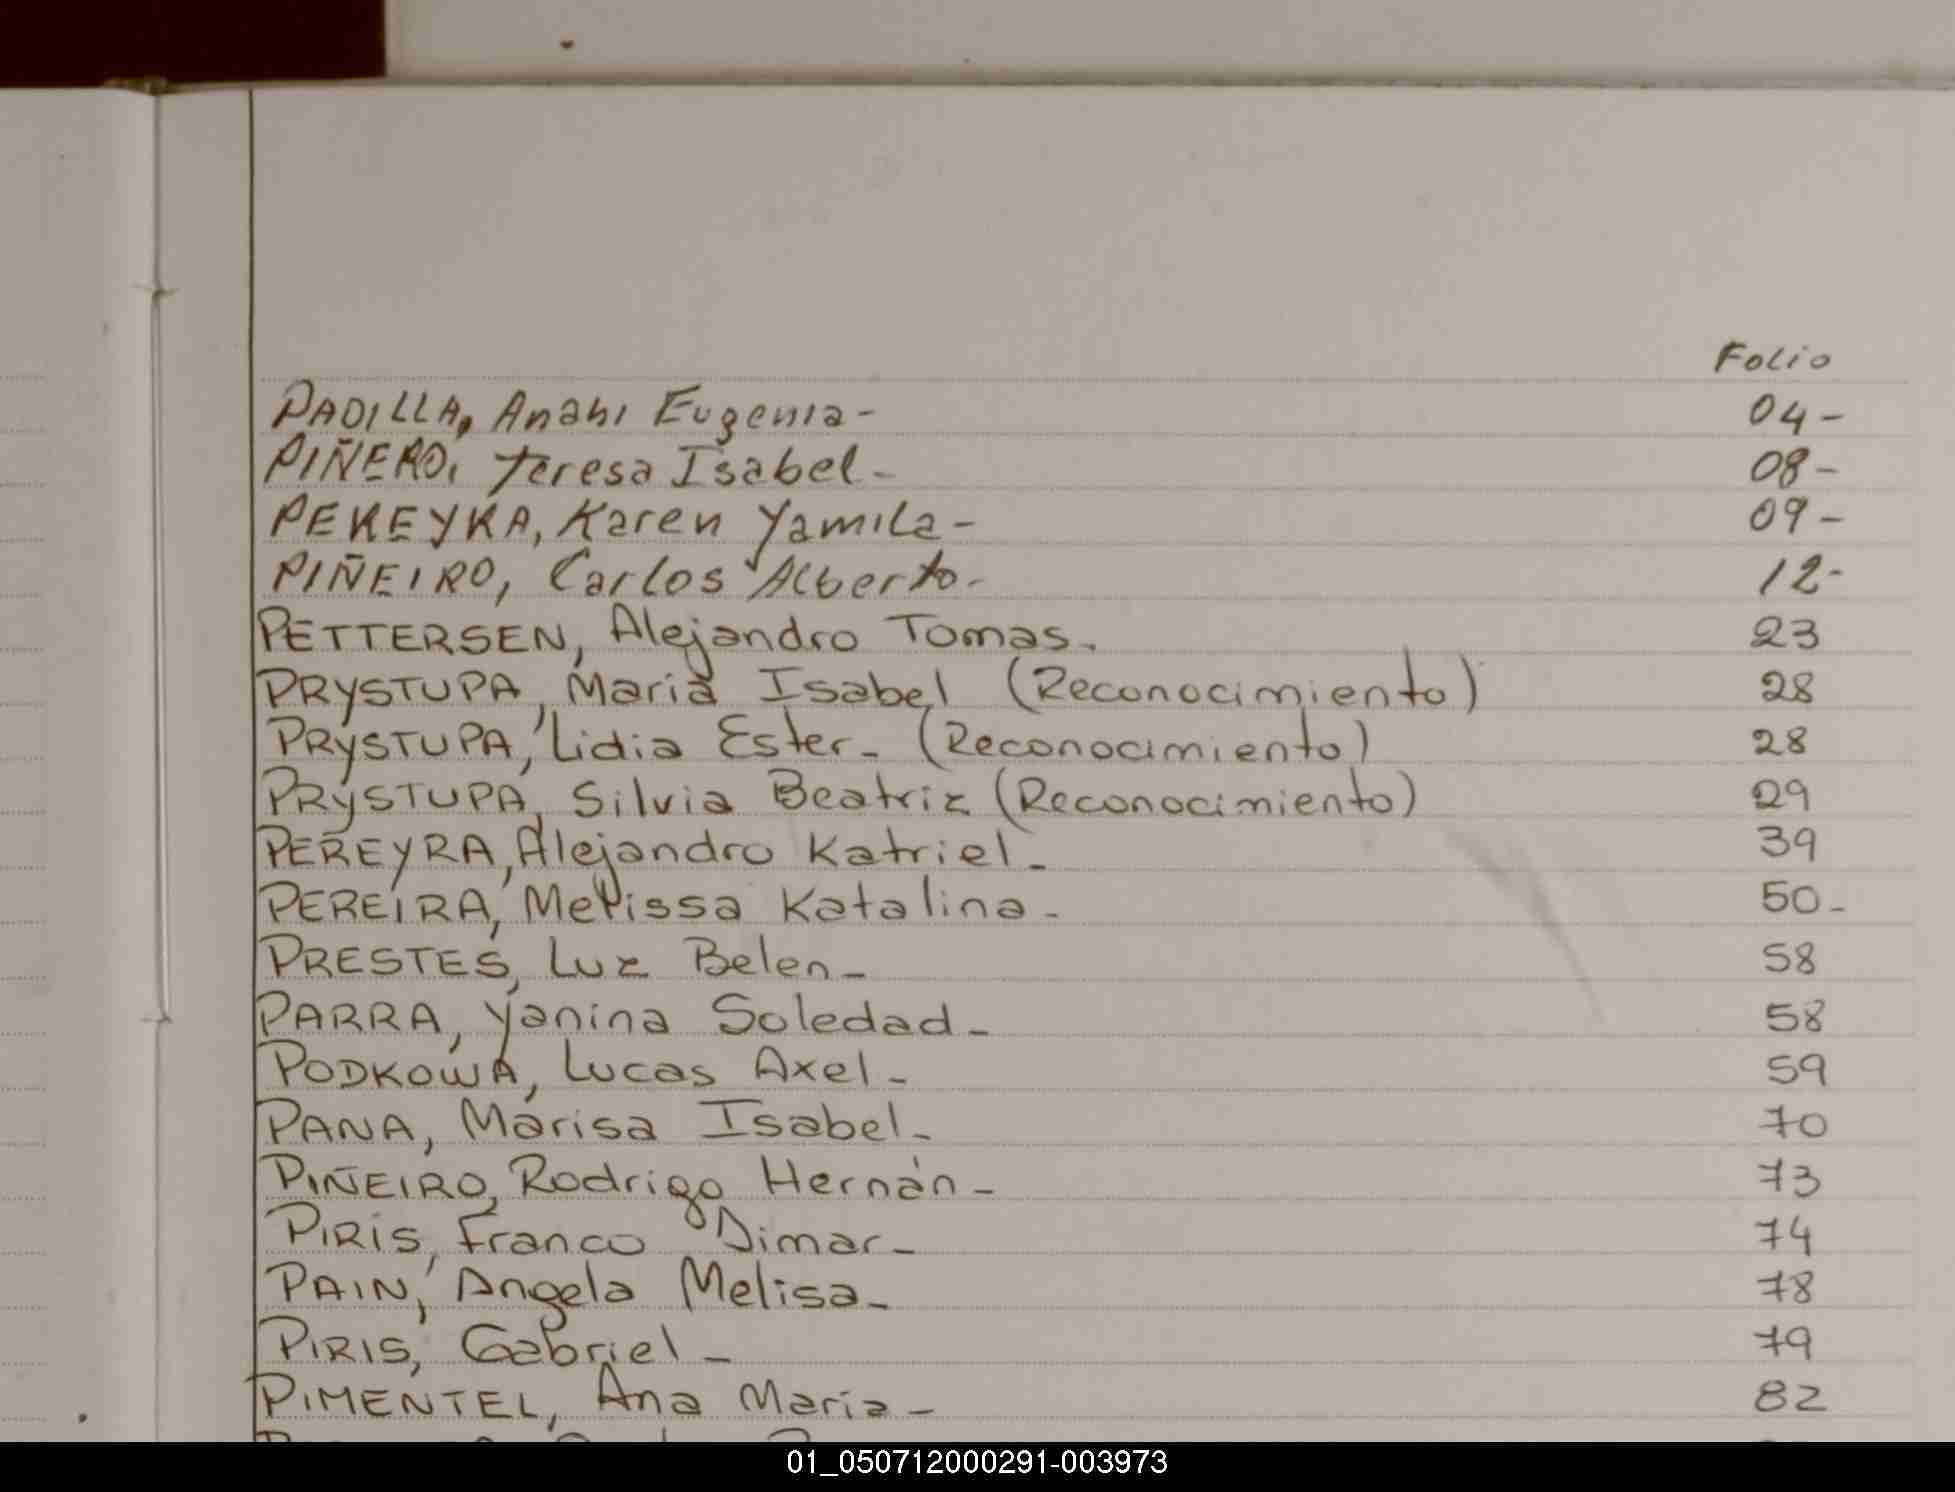 Folio
PADILLA, Anahi Eugenia- 04-
PIÑERO, Teresa Isabel- 08-
PEREYRA, Karen Yamila- 09-
PIÑEIRO, Carlos Alberto- 12-
PETTERSEN, Alejandro Tomas- 23
PRYSTUPA, Maria Isabel (Reconocimiento) 28
PRYSTUPA, Lidia Ester- (Reconocimiento) 28
PRYSTUPA, Silvia Beatriz (Reconocimiento) 29
PEREYRA, Alejandro Katriel- 39
PEREIRA, Melissa Katalina- 50-
PRESTES, Luz Belen- 58
PARRA, Yanina Soledad- 58
PODKOWA, Lucas Axel- 59
PANA, Marisa Isabel- 70
PIÑEIRO, Rodrigo Hernán- 73
PIRIS, Franco Dimar- 74
PAIN, Angela Melisa- 78
PIRIS, Gabriel- 79
PIMENTEL, Ana Maria- 82
01_050712000291-003973